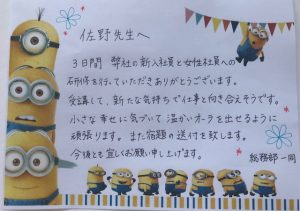 佐野先生へ
3日間 弊社の新入社員と女性社員への
研修を行っていただきありがとうございます。
受講して、新たな気持ちで仕事と向き合えそうです。
小さな幸せに気づいて温かいオーラを出せるように
頑張ります。また宿題の送付を致します。
今後とも宜しくお願い申し上げます。
総務部 一同